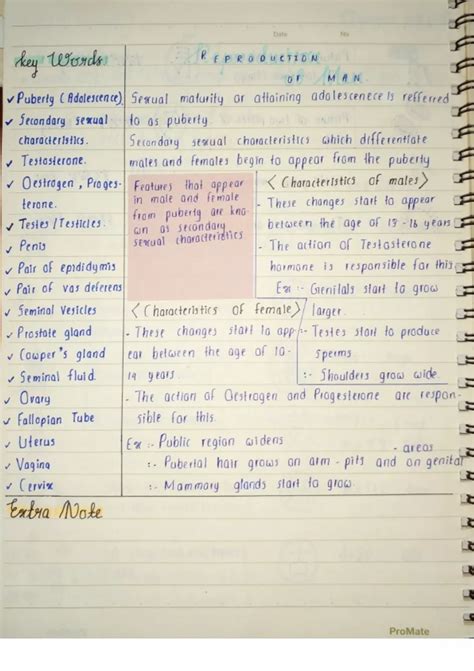 Date
No
Key Words
✓ Puberty (Adolescence)
✓ Secondary sexual
characteristics.
✓ Testosterone.
✓ Oestrogen, Proges-
terone.
✓ Testes/Testicles.
✓ Penis
✓ Pair of epididymis
✓ Pair of vas deferens
✓ Seminal Vesicles
✓ Prostate gland
✓ Cowper's gland
✓ Seminal fluid.
✓ Ovary
✓ Fallopian Tube
✓ Uterus
✓ Vagina
✓ Cervix
REPRODUCTION
OF MAN
Sexual maturity or attaining adolescenece is refferred
to as puberty.
Secondary sexual characteristics which differentiate
males and females begin to appear from the puberty
Features that appear
in male and female
from puberty are kno-
wn as secondary
sexual characteristics.
<Characteristics of males>
- These changes start to appear
between the age of 13 - 16 years
- The action of Testosterone
hormone is responsible for this
Ex :- Genitals start to grow
larger.
:- Testes start to produce
sperms.
:- Shoulders grow wide
<Characteristics of female>
- These changes start to app-
ear between the age of 10 -
14 years.
- The action of Oestrogen and Progesterone are respon-
sible for this.
Ex :- Public region widens
:- Puberial hair grows on arm-pits and on genital
- areas
:- Mammary glands start to grow.
Extra Note
ProMate